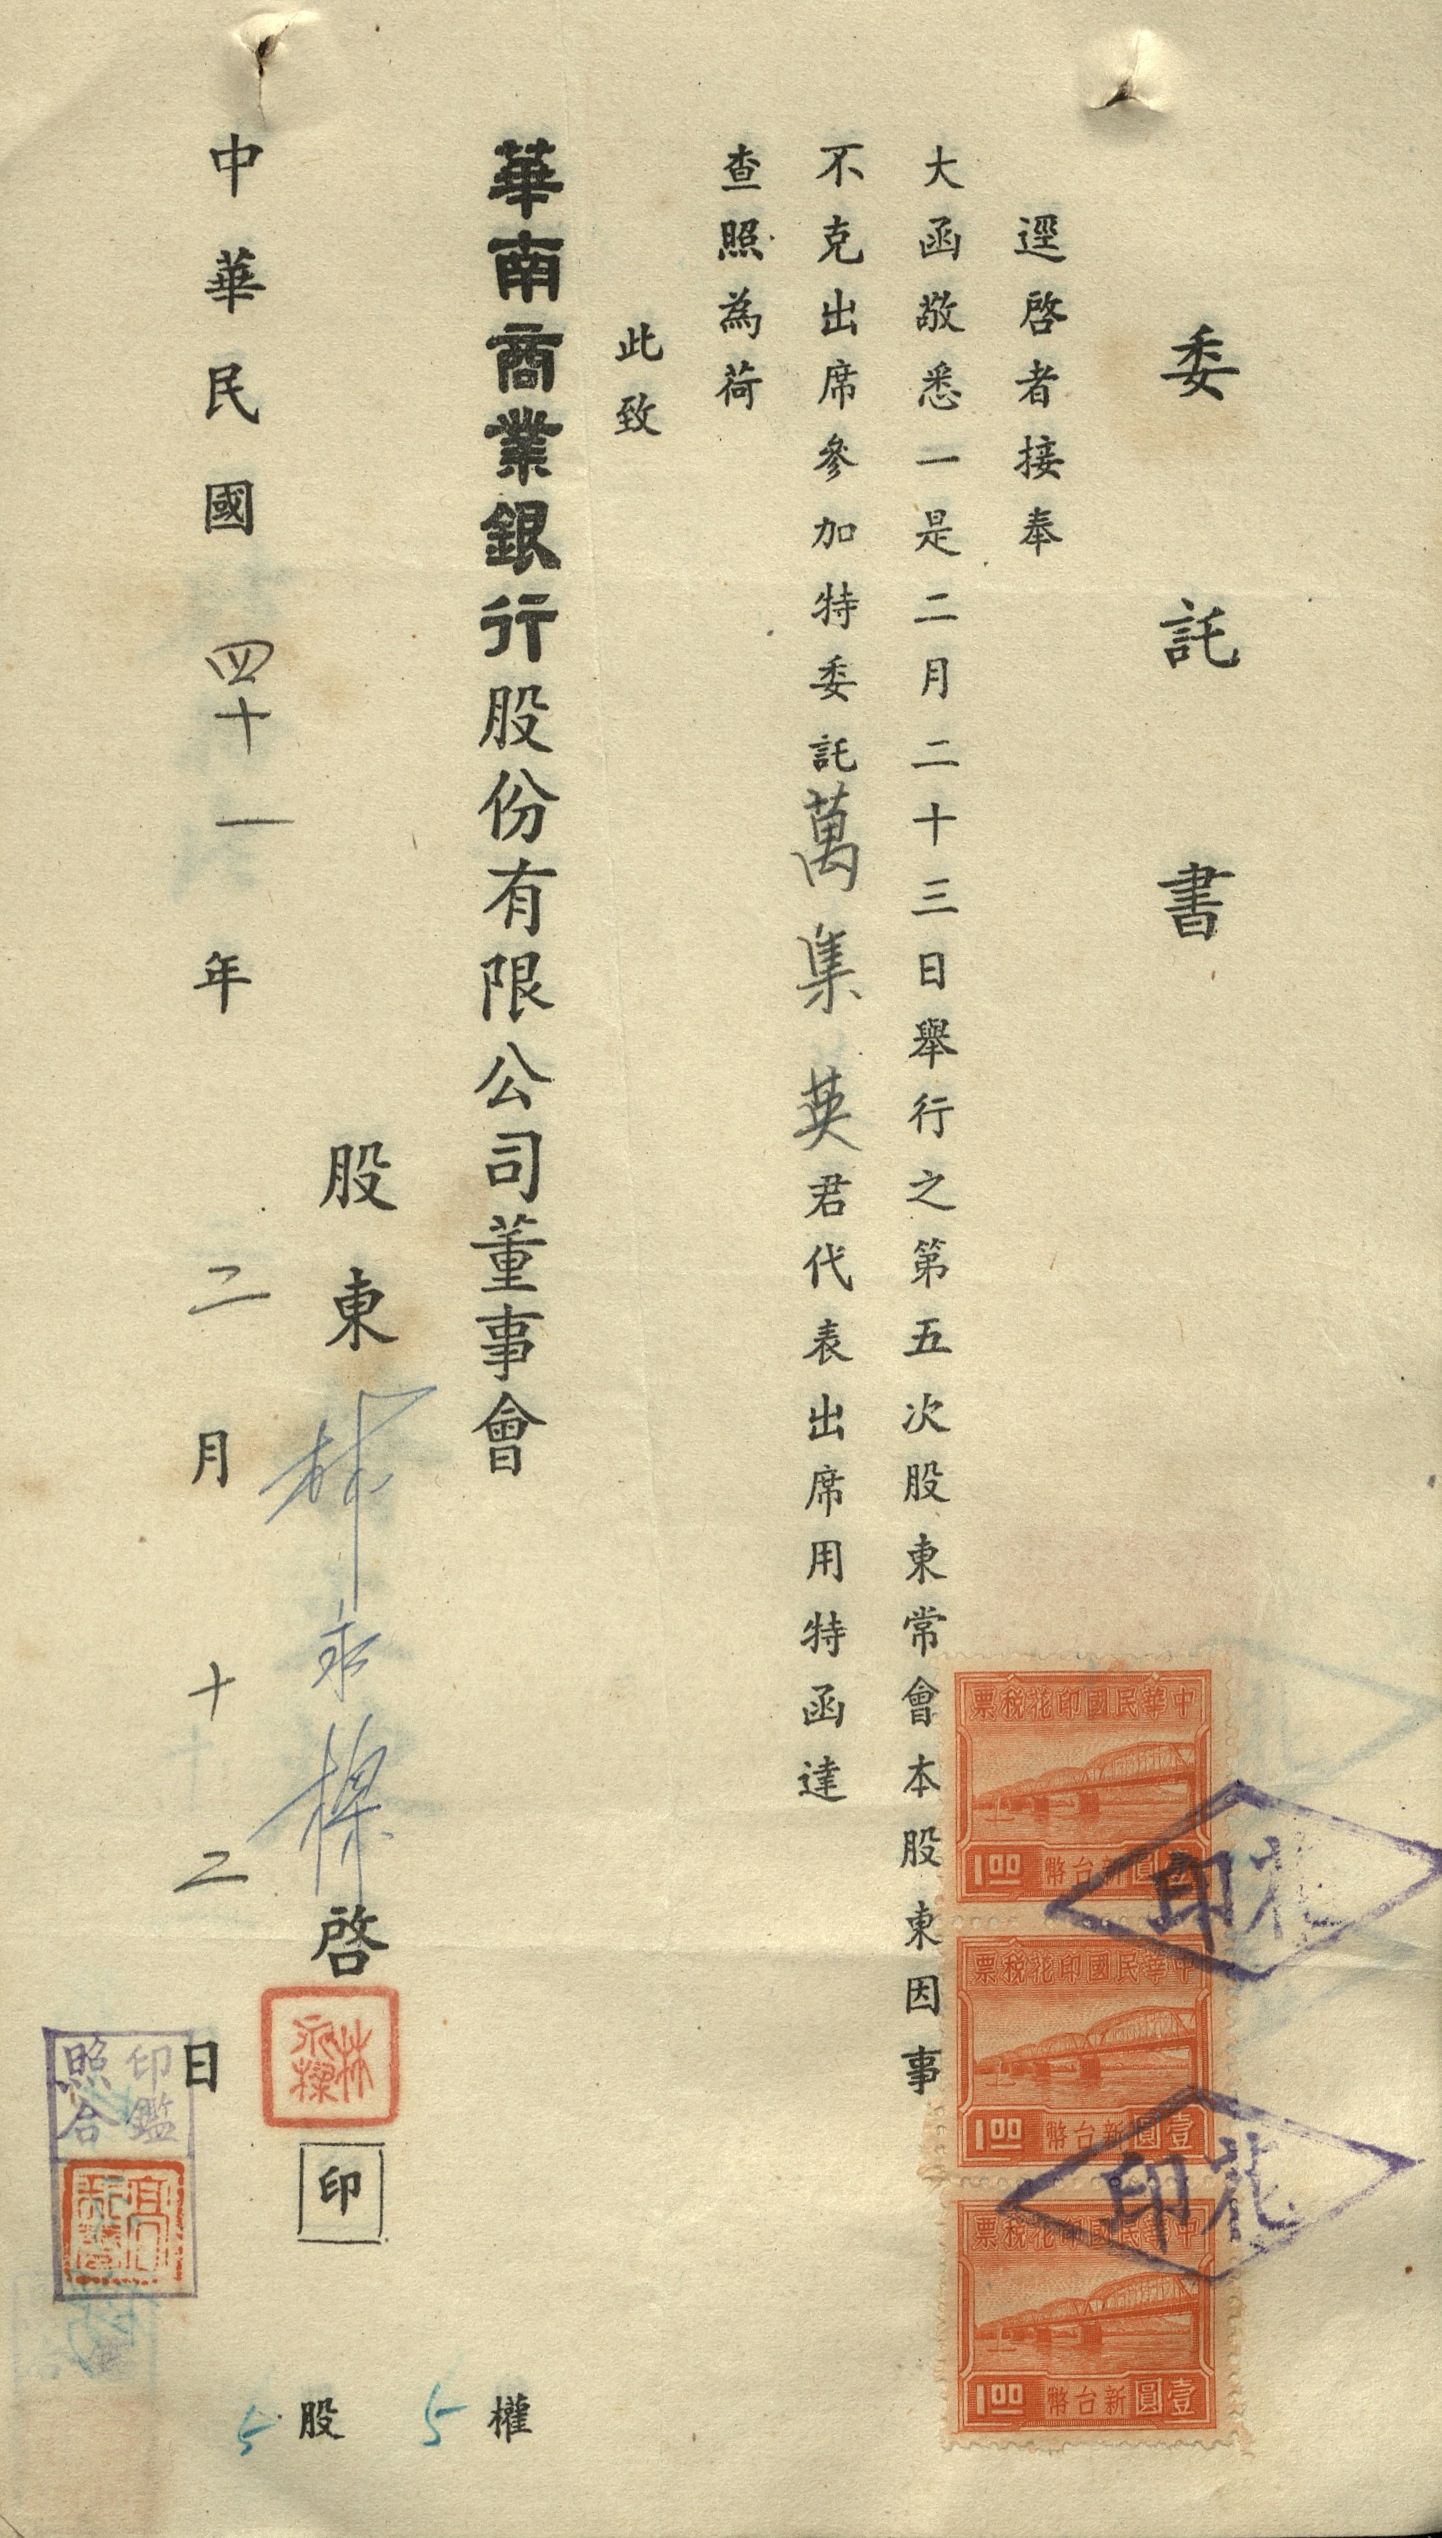 委託書
逕啓者接奉
大函敬悉一是二月二十三日舉行之第五次股東常會本股東因事
不克出席參加特委託萬集英君代表出席用特函達
查照為荷
此致
華南商業銀行股份有限公司董事會
股東林永樑啓
林永樑
印
中華民國四十一年二月十二日
印鑑
照合
權 5
股 5
中華民國印花稅票
1.00 新台幣壹圓
中華民國印花稅票
1.00 新台幣壹圓
中華民國印花稅票
1.00 新台幣壹圓
印花
印花